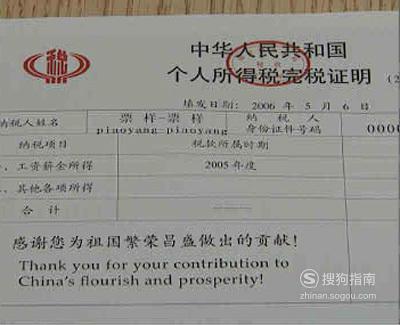 中华人民共和国
个人所得税完税证明 (2
填发日期: 2006 年 5 月 6 日
纳税人姓名 票样-票样 piaoyang piaoyang 纳税人身份证件号码 0000
纳税项目 税款所属时期
、工资薪金所得 2005 年度
、其他各项所得
合计
感谢您为祖国繁荣昌盛做出的贡献!
Thank you for your contribution to
China's flourish and prosperity!
搜狗指南
zhinan.sogou.com